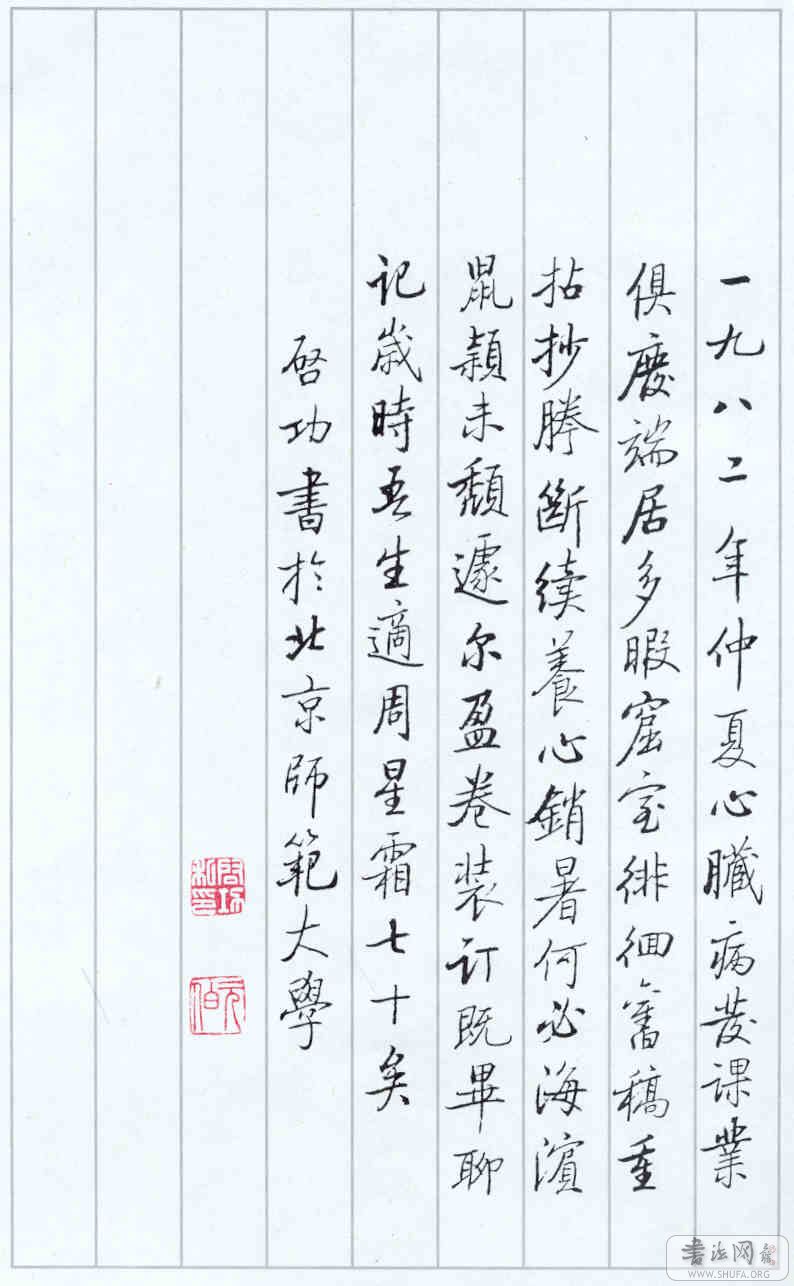 一九八二年仲夏心臓病發課業
俱廢端居多暇窟室徘徊舊稿重
拈抄謄斷續養心銷暑何必海濱
鼠穎未頹遽尔盈卷装订既畢聊
记歲時吾生適周星霜七十矣
啓功書於北京師範大學
啓功私印
元伯
書法网
WWW.SHUFA.ORG